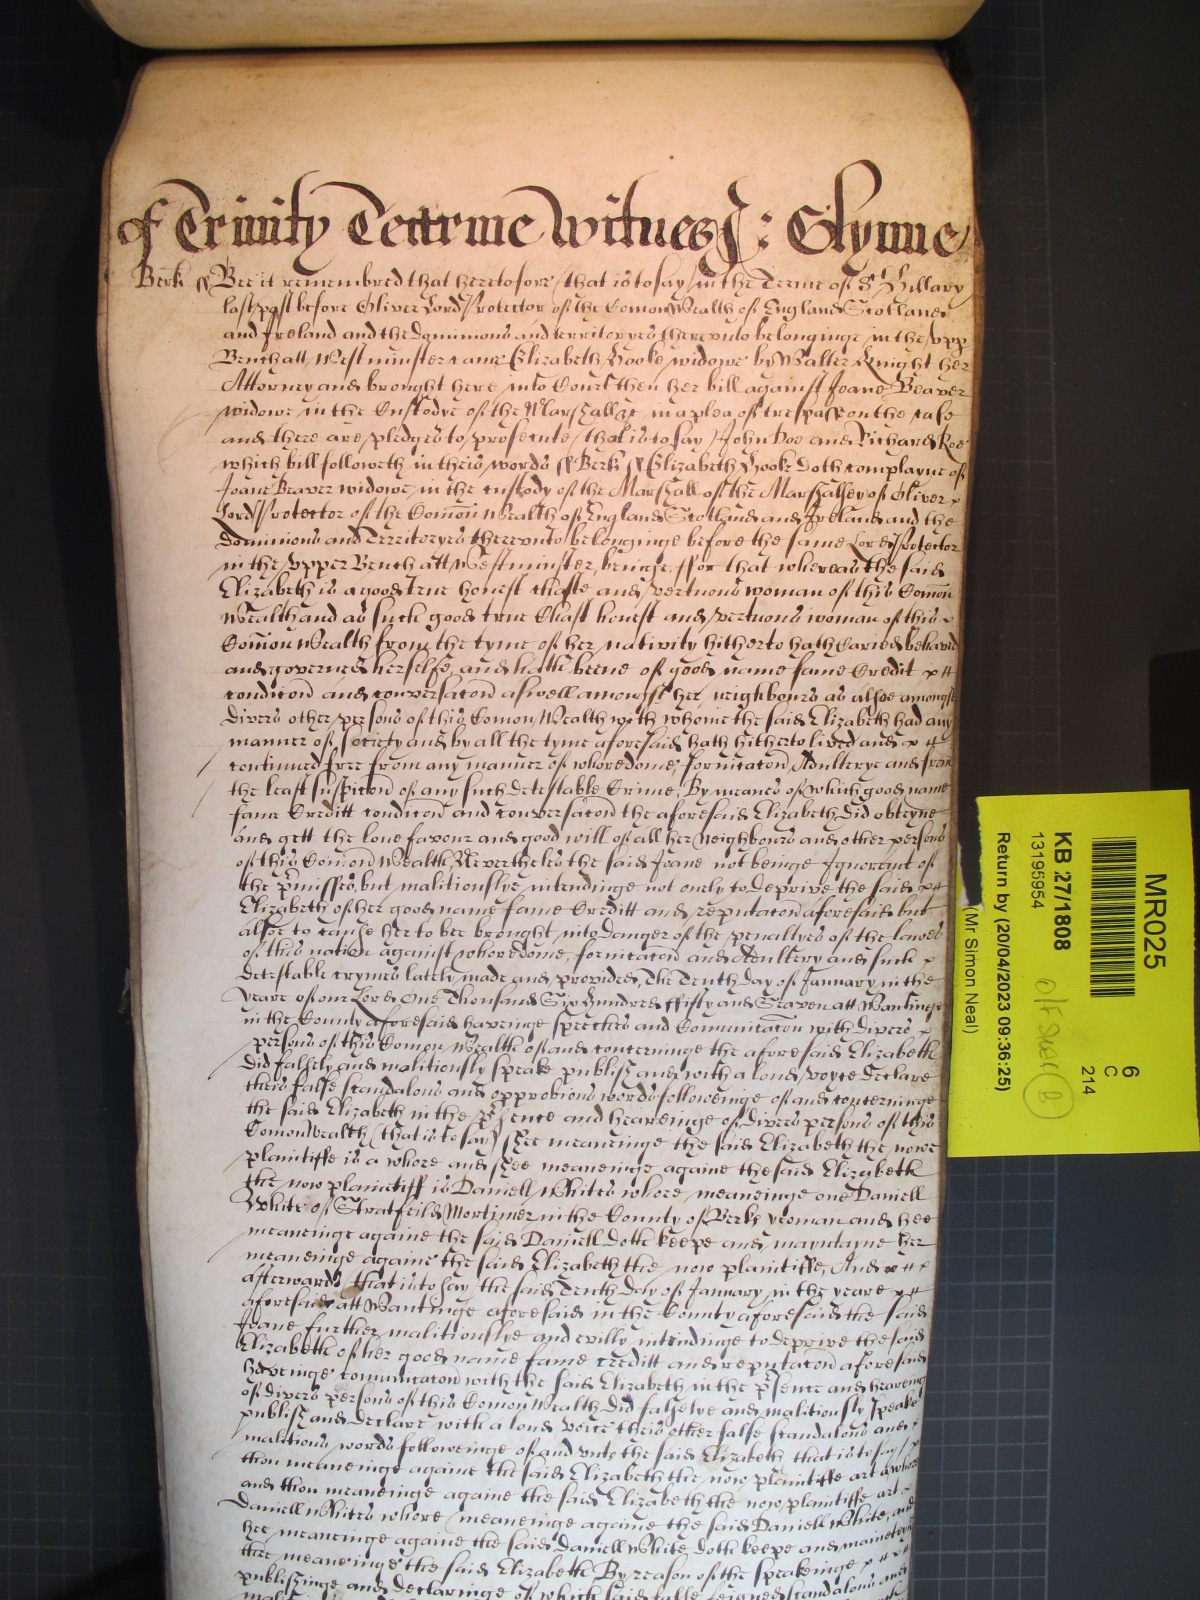 of Trinity Tearme Witnes J: Glynne
Berk ss Bee it remembred that heretofore that is to say in the Terme of St Hillary
last past before Oliver Lord Protector of the Comon Wealth of England Scotland
and Ireland and the Dominions and territoryes thereunto belonginge in the Upp
Bench att Westminster came Elizabeth Hooke widowe by Walter Knight her
Attorney and brought here into Court then her bill against Joane Beaver
widowe in the Custodye of the Marshall &c in a plea of trespasse on the case
and there are pledges to prosecute that is to say John Doe and Richard Roe
which bill followeth in theis words ss Berks ss Elizabeth Hooke doth complayne of
Joane Beaver widowe in the custody of the Marshall of the Marshalsey of Oliver
Lord Protector of the Comon Wealth of England Scotland and Ireland and the
Dominions and Territoryes thereunto belonginge before the same Lord Protector
in the Upper Bench att Westminster beinge, ffor that whereas the said
Elizabeth is a good true honest chaste and vertuous woman of this Comon
Wealth and as such good true Chast honest and vertuous woman of this
Comon Wealth from the tyme of her nativity hitherto hath Caried behaved
and governed herselfe, and hath beene of good name fame Credit
condicon and conversacon aswell amongst her neighbours as alsoe amongst
divers other persons of this Comon Wealth with whome the said Elizabeth had any
manner of society and by all the tyme aforesaid hath hitherto lived and
continued free from any manner of whoredome, fornicacon Adulterye and from
the least suspicon of any such detestable Crime, By meanes of which good name
fame Creditt condicon and conversacon the aforesaid Elizabeth did obteyne
and gett the love favour and good will of all her Neighbours and other persons
of this Comon Wealth, Neverthelesse the said Joane not beinge Ignorant of
the pmisses, but malitiouslye intendinge not onely to deprive the said
Elizabeth of her good name fame Creditt and reputacon aforesaid but
alsoe to cause her to bee brought into danger of the penaltyes of the lawes
of this nation against whoredome, fornicacon and Adultery and such
detestable crymes lately made and provided, The Tenth day of January in the
yeare of our Lord One Thousand Six Hundred ffifty and Seaven att Wantinge
in the County aforesaid haveinge speeches and Comunicacon with divers
persons of this Comon Wealth of and concerninge the aforesaid Elizabeth
did falsely and malitiously speake publish and with a loud voyce declare
theis false scandalous and opprobrious words followeinge of and concerninge
the said Elizabeth in the psence and heareinge of divers persons of this
Comon Wealth (that is to say) shee meaneinge the said Elizabeth the nowe
plaintiffe is a whore and shee meaneinge againe the said Elizabeth
the now plaintiff is Daniell Whites whore meaneinge one Daniell
White of Stratfeild Mortimer in the County of Berks yeoman and hee
meaneinge againe the said Daniell doth keepe and mayntayne her
meaneinge againe the said Elizabeth the now plaintiffe, And
afterwards that is to say the said Tenth day of January in the yeare
aforesaid att Wantinge aforesaid in the County aforesaid the said
Joane further malitiouslye and evilly intendinge to deprive the said
Elizabeth of her good name fame creditt and reputacon aforesaid
haveinge comunicacon with the said Elizabeth in the psence and heareing
of divers persons of this Comon Wealth did falselye and malitiously speake
publish and declare with a loud voice theis other false scandalous and
malitious words followeinge of and unto the said Elizabeth that is to say
thou meaneinge againe the said Elizabeth the now plaintiffe art a whore
and thou meaneinge againe the said Elizabeth the now plaintiffe art
Daniell Whites whore meaneinge againe the said Daniell White, and
hee meaneinge againe the said Daniell White doth keepe and mainteyne
thee meaneinge the said Elizabeth By reason of the speakeinge
publishinge and declaringe of which said false feigned scandalous and
MR025
6
C
214
KB 27/1808
13195954
Return by (20/04/2023 09:36:25)
(Mr Simon Neal)